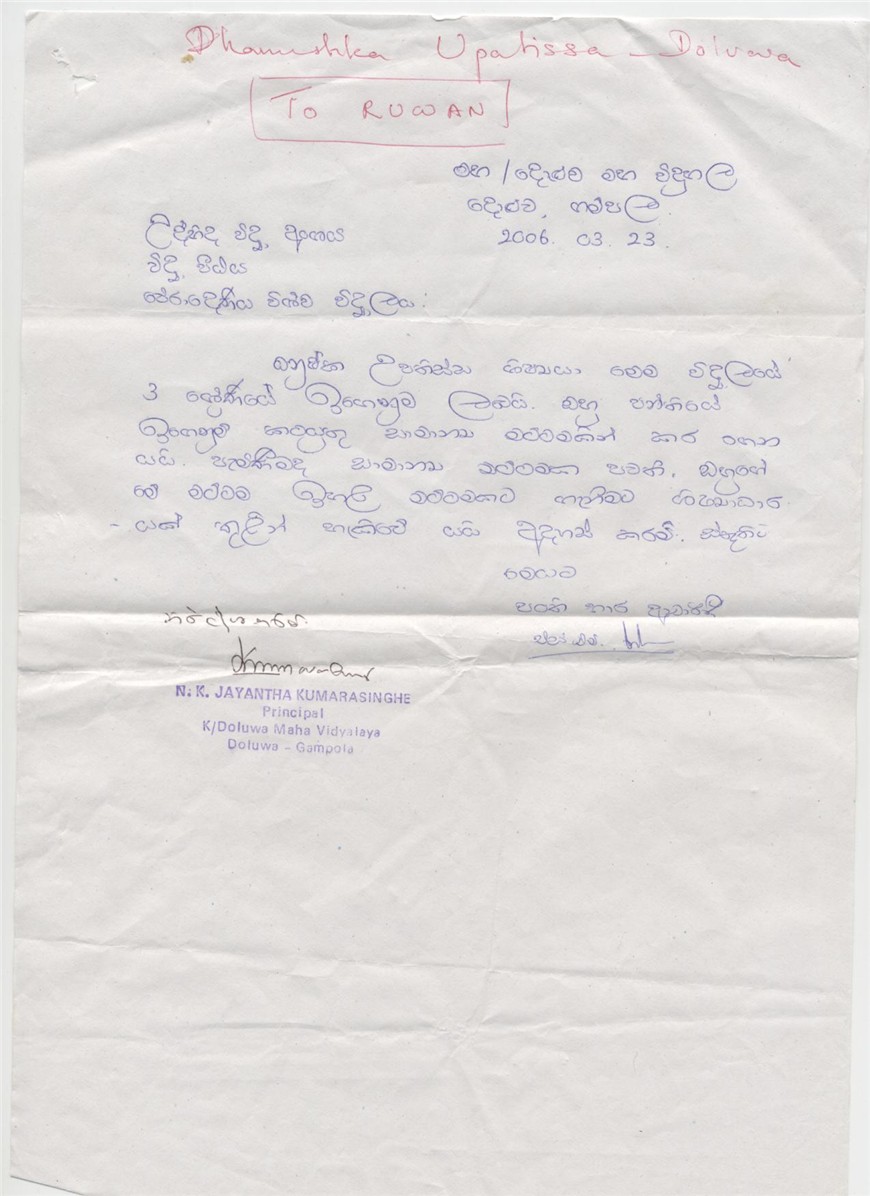 Dhanushka Upatissa - Doluwa
To RUWAN
මහ / දොළුව මහ විදුහල
දොළුව, ගම්පල.
2006. 03. 23.
උද්භිද විද්‍යා අංශය
විද්‍යා පීඨය
පේරාදෙණිය විශ්ව විද්‍යාලය.
ධනුෂ්ක උපතිස්ස ශිෂ්‍යයා මෙම විද්‍යාලයේ
3 ශ්‍රේණියේ ඉගෙනුම ලබයි. ඔහු පන්තියේ
ඉගෙනුම් කටයුතු සාමාන්‍ය මට්ටමකින් කර ගෙන
යයි. පැමිණීමද සාමාන්‍ය මට්ටමක පවතී. ඔහුගේ
මේ මට්ටම ඉහළ මට්ටමකට ගැනීමට ශිෂ්‍යාධාර
- යක් තුළින් හැකිවේ යයි අදහස් කරමි. ස්තූතියි
මෙයට
පංති භාර ආචාර්ය
නිර්දේශ කරමි.
N. K. JAYANTHA KUMARASINGHE
Principal
K/Doluwa Maha Vidyalaya
Doluwa - Gampola